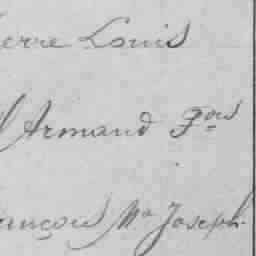 ierre Louis
Armand Fois
ançois Ma Joseph